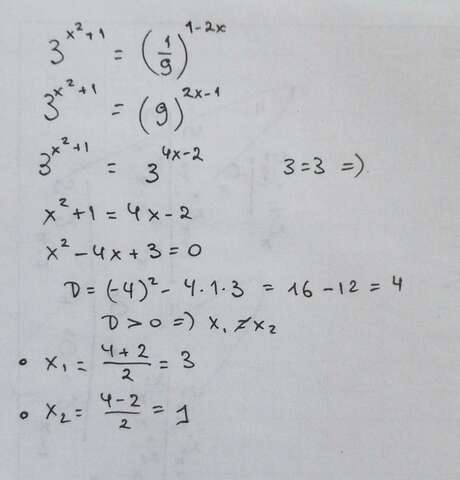 3^{x^2+1} = (1/9)^{1-2x}
3^{x^2+1} = (9)^{2x-1}
3^{x^2+1} = 3^{4x-2} 3=3 =)
x^2+1 = 4x-2
x^2-4x+3=0
D=(-4)^2-4·1·3 = 16-12=4
D>0 =) x_1≠x_2
• x_1 = (4+2)/2 = 3
• x_2 = (4-2)/2 = 1